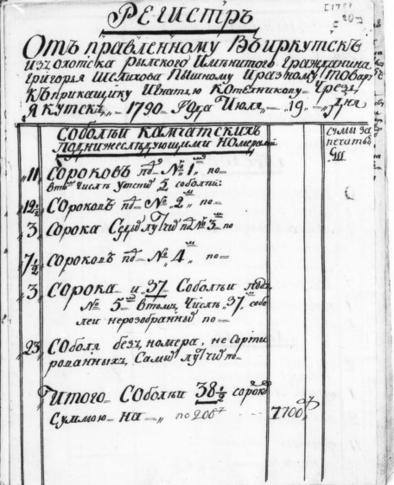 РЕГИСТРЪ
Отъ правленному Въ Иркутскъ
изъ охотска рилского Имянитого гражданина
Григорья Шелихова Пушному Иразному товару
къ Прикащику Игнатью
Якутскъ 1790 года Июля 19 дня
Соболи Камчатскихъ
поднижеследующими номерами
11 Сороковъ под №1 по
втом Числе 5 соболей
12½ Сороковъ под № 2 по
3 Сорока под № 3 по
7½ Сороковъ под № 4 по
3 Сорока и 37 Соболей под
№ 5 втомъ Числе 37 собо
лей неразобранных по
23 Соболя безъ номера, не Сорти
рованныхъ, Самые лутчие по
Итого Соболей 38½ сороковъ
Суммою на по 200 7700